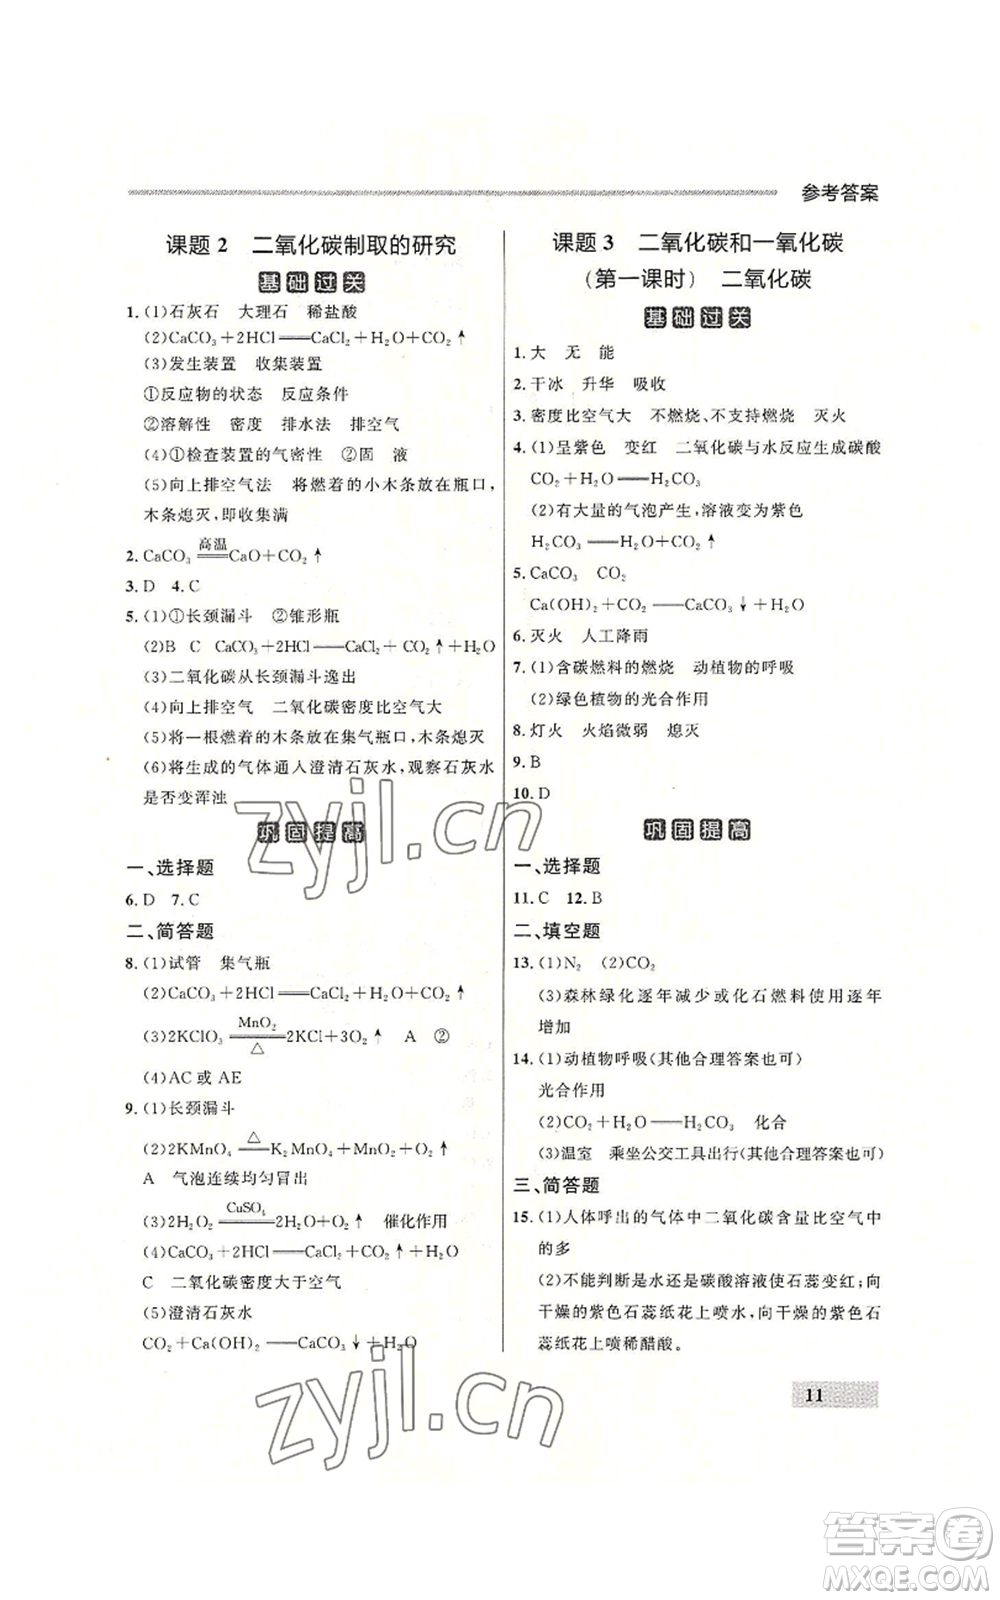 参考答案
课题 2　二氧化碳制取的研究
基础过关
1. (1)石灰石　大理石　稀盐酸
(2)CaCO₃+2HCl══CaCl₂+H₂O+CO₂↑
(3)发生装置　收集装置
①反应物的状态　反应条件
②溶解性　密度　排水法　排空气
(4)①检查装置的气密性　②固　液
(5)向上排空气法　将燃着的小木条放在瓶口,
木条熄灭,即收集满
2. CaCO₃ 高温══ CaO+CO₂↑
3. D　4. C
5. (1)①长颈漏斗　②锥形瓶
(2)B　C　CaCO₃+2HCl——CaCl₂+CO₂↑+H₂O
(3)二氧化碳从长颈漏斗逸出
(4)向上排空气　二氧化碳密度比空气大
(5)将一根燃着的木条放在集气瓶口,木条熄灭
(6)将生成的气体通人澄清石灰水,观察石灰水
是否变浑浊
巩固提高
一、选择题
6. D　7. C
二、简答题
8. (1)试管　集气瓶
(2)CaCO₃+2HCl══CaCl₂+H₂O+CO₂↑
(3)2KClO₃ MnO₂══△ 2KCl+3O₂↑　A　②
(4)AC 或 AE
9. (1)长颈漏斗
(2)2KMnO₄ △══ K₂MnO₄+MnO₂+O₂↑
A　气泡连续均匀冒出
(3)2H₂O₂ CuSO₄══ 2H₂O+O₂↑　催化作用
(4)CaCO₃+2HCl——CaCl₂+CO₂↑+H₂O
C　二氧化碳密度大于空气
(5)澄清石灰水
CO₂+Ca(OH)₂——CaCO₃↓+H₂O
课题 3　二氧化碳和一氧化碳
(第一课时)　二氧化碳
基础过关
1. 大　无　能
2. 干冰　升华　吸收
3. 密度比空气大　不燃烧、不支持燃烧　灭火
4. (1)呈紫色　变红　二氧化碳与水反应生成碳酸
CO₂+H₂O——H₂CO₃
(2)有大量的气泡产生,溶液变为紫色
H₂CO₃——H₂O+CO₂↑
5. CaCO₃　CO₂
Ca(OH)₂+CO₂——CaCO₃↓+H₂O
6. 灭火　人工降雨
7. (1)含碳燃料的燃烧　动植物的呼吸
(2)绿色植物的光合作用
8. 灯火　火焰微弱　熄灭
9. B
10. D
巩固提高
一、选择题
11. C　12. B
二、填空题
13. (1)N₂　(2)CO₂
(3)森林绿化逐年减少或化石燃料使用逐年
增加
14. (1)动植物呼吸(其他合理答案也可)
光合作用
(2)CO₂+H₂O——H₂CO₃　化合
(3)温室　乘坐公交工具出行(其他合理答案也可)
三、简答题
15. (1)人体呼出的气体中二氧化碳含量比空气中
的多
(2)不能判断是水还是碳酸溶液使石蕊变红;向
干燥的紫色石蕊纸花上喷水,向干燥的紫色石
蕊纸花上喷稀醋酸。
11
zyjl.cn
zyjl.cn
答案卷
MXQE.COM